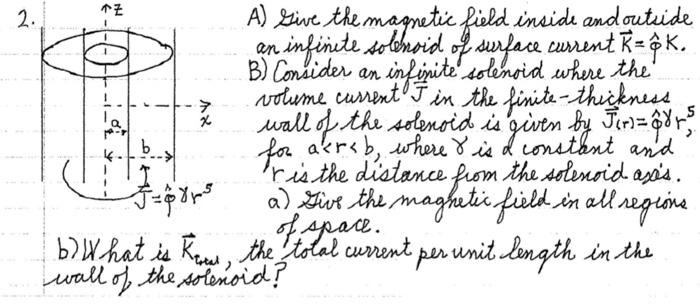 2.
z
x
a
b
J⃗=φ̂γr⁵
A) Give the magnetic field inside and outside
an infinite solenoid of surface current K⃗=φ̂K.
B) Consider an infinite solenoid where the
volume current J⃗ in the finite-thickness
wall of the solenoid is given by J⃗(r)=φ̂γr⁵,
for a<r<b, where γ is a constant and
r is the distance from the solenoid axis.
a) Give the magnetic field in all regions
of space.
b) What is K⃗total, the total current per unit length in the
wall of the solenoid?